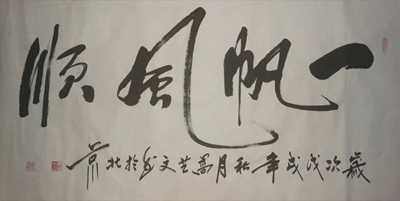 一帆風順
歲次戊戌年秋月芸文书於北京